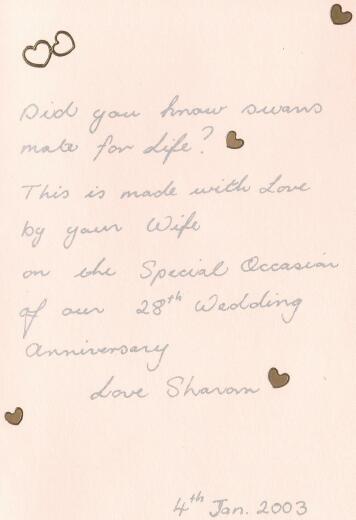 Did you know swans
mate for Life?
This is made with Love
by your Wife
on the Special Occasion
of our 28th Wedding
Anniversary
Love Sharon
4th Jan. 2003